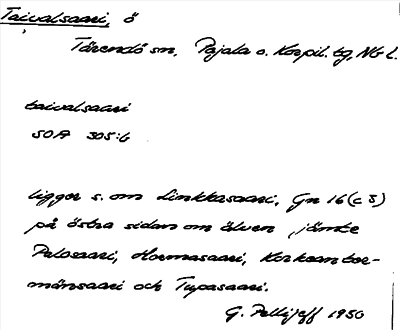 Taivalsaari, ö
Tärendö sn, Pajala o. Korpil. tg, Nb l.
taivalsaari
SOA 305:6
ligger s. om Linkkasaari, Gn 16 (c 5)
på östra sidan om älven, jämte
Palosaari, Hormasaari, Korkeantor-
mänsaari och Tupasaari.
G. Pellijeff 1950